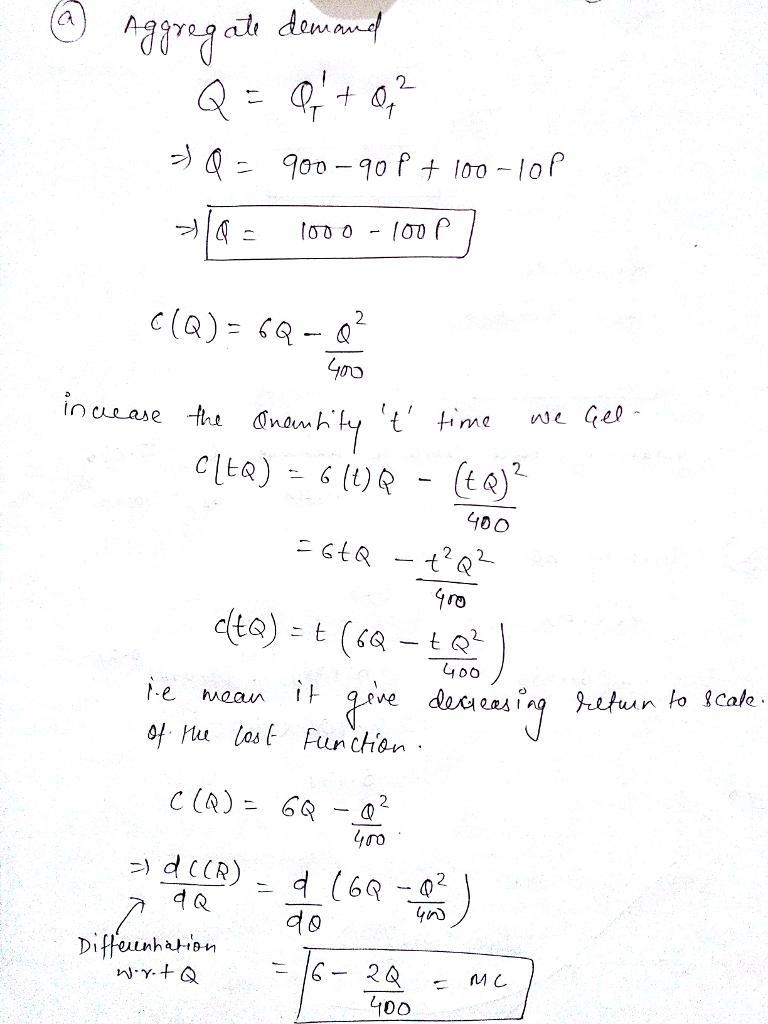 (a) Aggregate demand
Q = Q_T^1 + Q_T^2
⇒ Q = 900 - 90P + 100 - 10P
⇒ Q = 1000 - 100P
C(Q) = 6Q - Q²/400
increase the Quantity 't' time we Gel -
C(tQ) = 6(t)Q - (tQ)²/400
= 6tQ - t²Q²/400
C(tQ) = t (6Q - tQ²/400)
i.e mean it give decreasing return to scale.
of the Cost Function.
C(Q) = 6Q - Q²/400
⇒ dC(Q)/dQ = d/dQ (6Q - Q²/400)
Differenhation
w.r.t Q
= 6 - 2Q/400 = MC